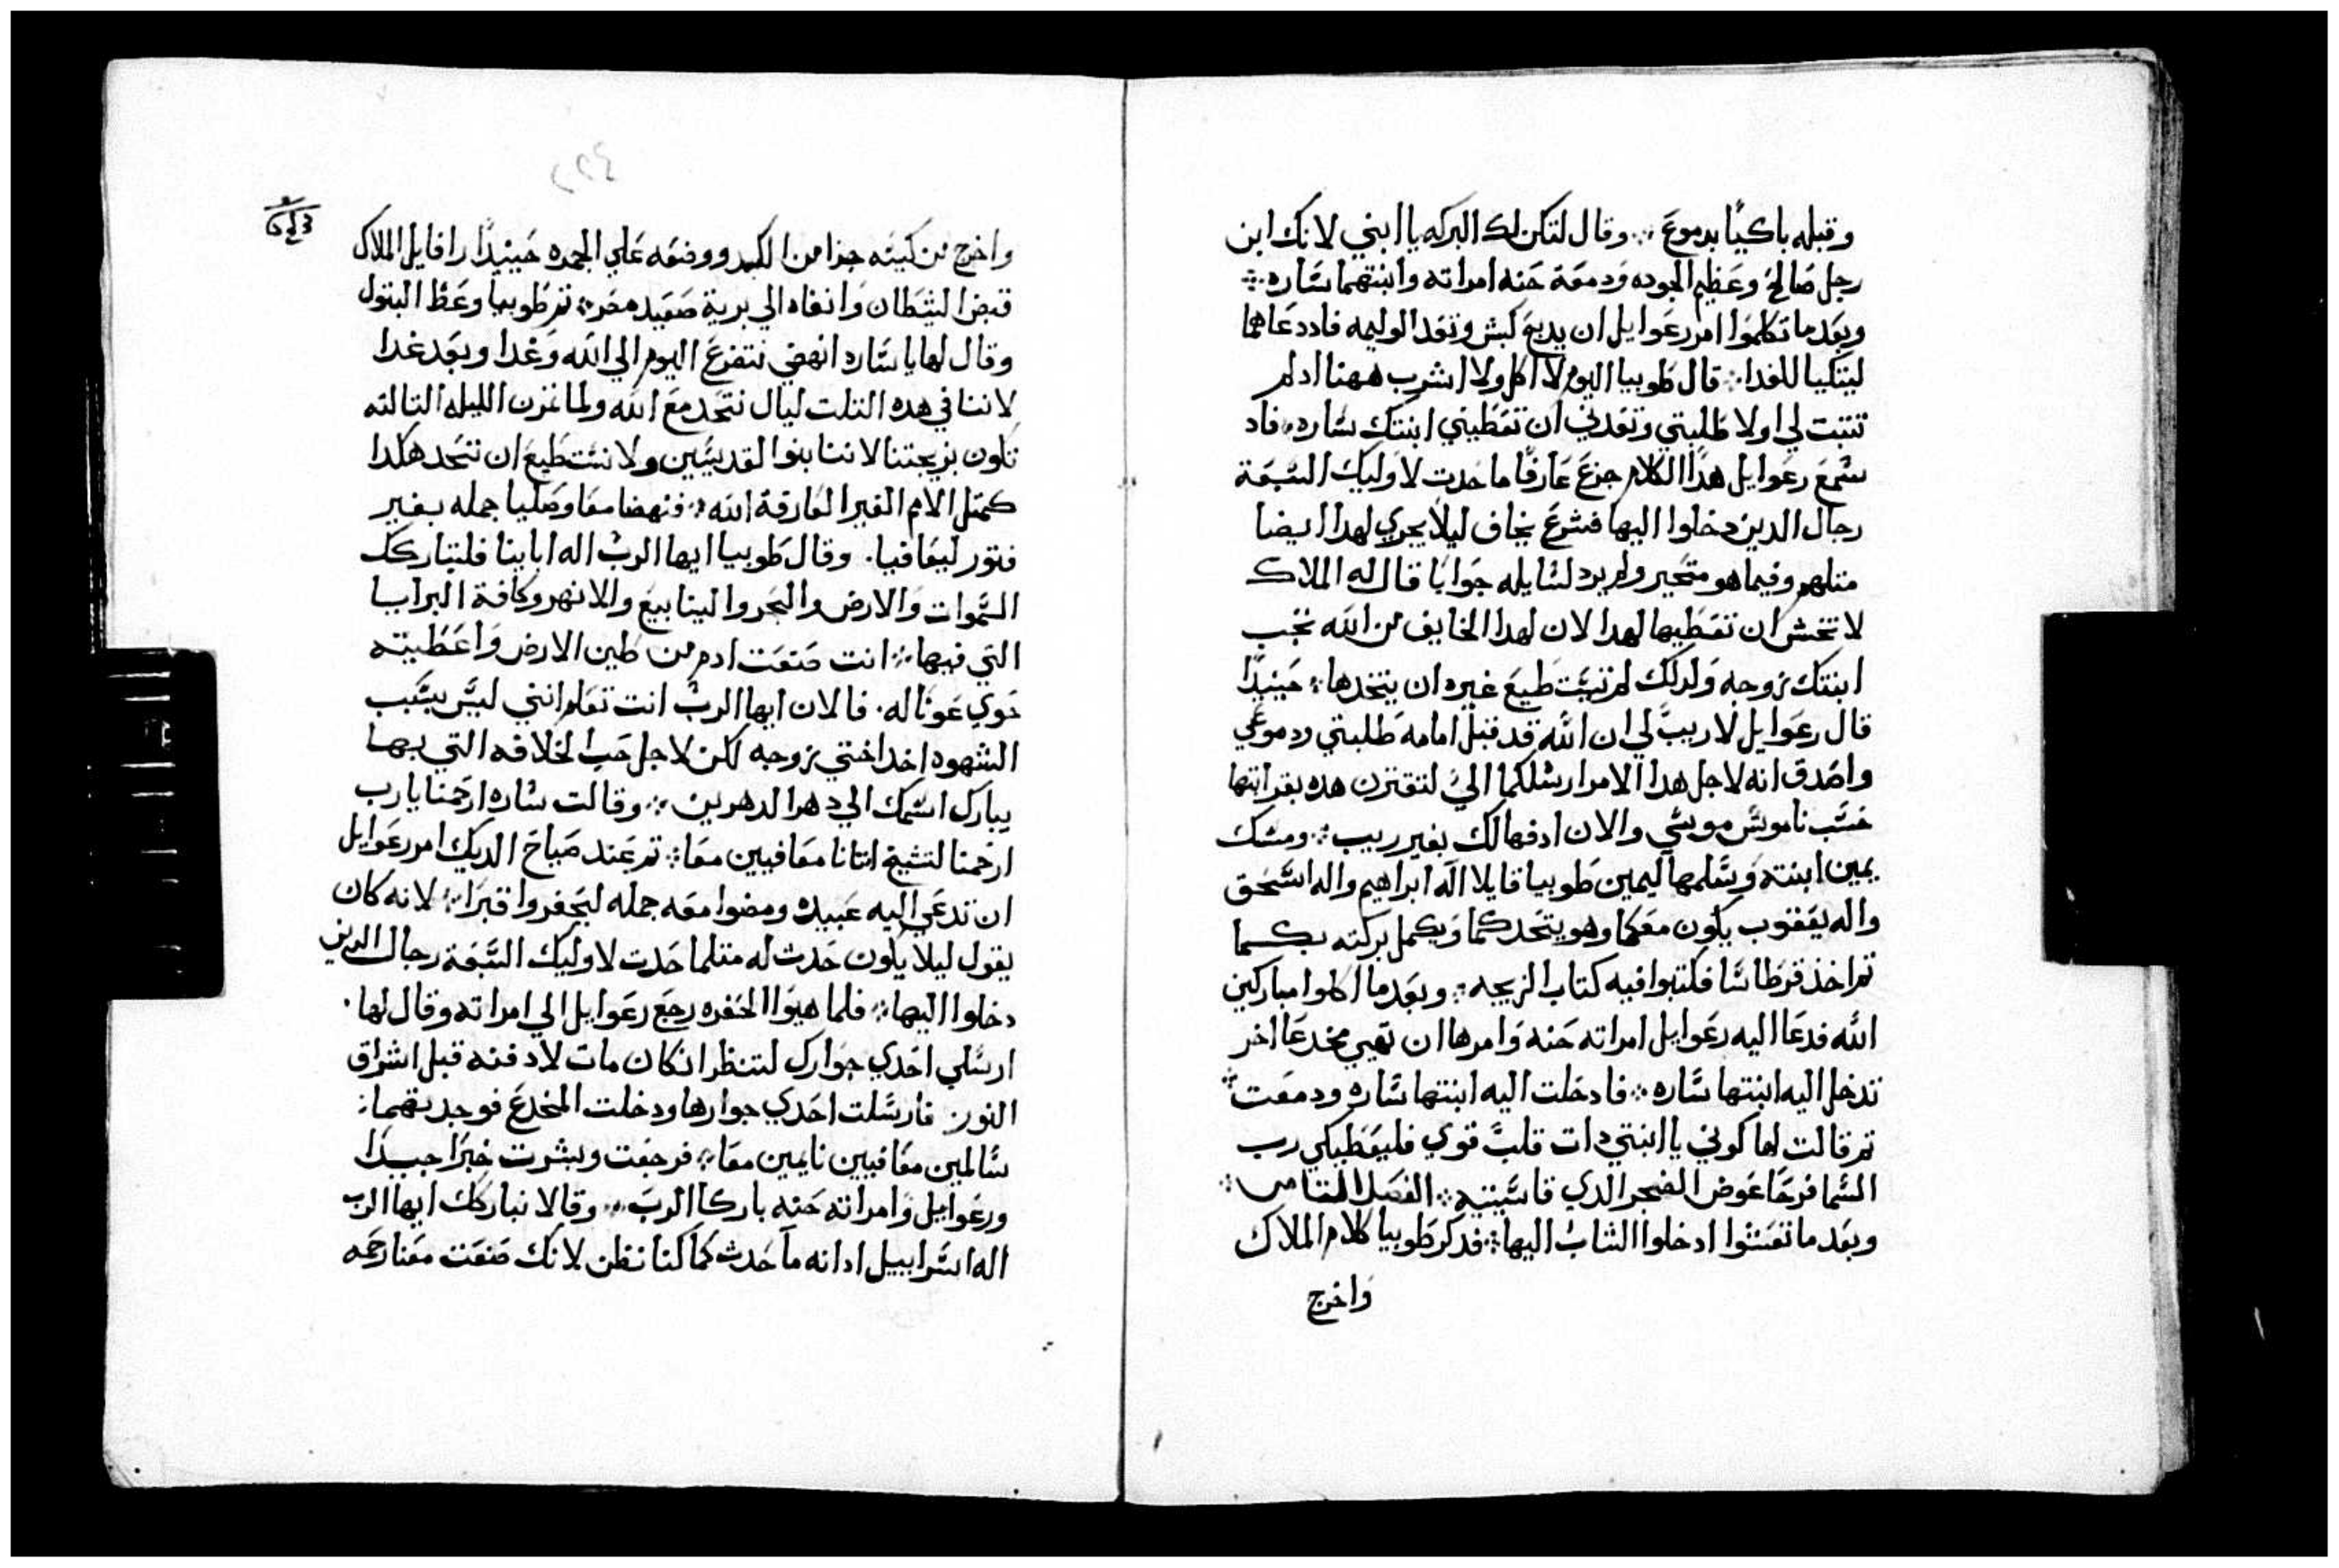 وقبله باكيًا بدموع ؞ وقال لتكن لك البركه يا ابني لانك ابن
رجل صالح وعظيم الجوده ودمعة حنه امراته وابنتهما ساره ؞
وبعدما تكلموا امر رعوايل ان يدبح كبش وتعد الوليمه فاد دعاهما
ليتكيا للغدا ؞ قال طوبيا اليوم لا اكل ولا اشرب ههنا اد لم
تتبت لي اولا طلبتي وتعدني ان تعطيني ابنتك ساره ؞ فاد
سمع رعوايل هدا الكلام جزع عارفًا ما حدت لاوليك السبعة
رجال الدين دخلوا اليها فشرع يخاف ليلا يجري لهدا ايضا
متلهم وفيما هو متحير ولم يرد لسايله جوابًا قال له الملاك
لا تخش ان تعطيها لهدا لان لهدا الخايف من الله تجب
ابنتك زوجه ولدلك لم تستطيع غيره ان يتخدها ؞ حينيدًا
قال رعوايل لا ريب لي ان الله قد قبل امامه طلبتي ودموعي
واصدق انه لاجل هدا الامر ارسلكما اليّ لتقترن هده بقرابتها
حسب ناموس موسي والان ادفعها لك بغير ريب ؞ ومسك
يمين ابنته وسلمها ليمين طوبيا قايلا اله ابراهيم واله اسحق
واله يعقوب يكون معكما وهو يتحدكما ويكمل بركته بكما
تم اخذ قرطاسًا فكتبوا فيه كتاب الزيجه ؞ وبعدما اكلوا مباركين
الله فدعا اليه رعوايل امراته حنه وامرها ان تهيي مخدعا اخر
تدخل اليه ابنتها ساره ؞ فادخلت اليه ابنتها ساره ودمعت ؞
تم قالت لها كوني يا ابنتي دات قلبً قوي فليعطيكي رب
السما فرحًا عوض الضجر الدي قاسيتيه ؞ الفصل التامن ؞
وبعد ما تعشوا ادخلوا الشاب اليها ؞ فدكر طوبيا كلام الملاك
واخرج
٢٢٤
واخرج من كيسه جزا من الكبد ووضعه علي الجمره حينيدًا رافايل الملاك
قبض الشيطان وانفاه الي برية صعيد مصر ؞ تم طوبيا وعظ البتول
وقال لها يا ساره انهضي نتضرع اليوم الي الله وغدا وبعد غدا
لاننا في هده التلت ليال نتحد مع الله ولما تمزن الليله التالته
نكون بزيجتنا لاننا بنوا القديسين ولا نستطيع ان نتحد هكدا
كمتل الامم الغير العارفة الله ؞ فنهضا معا وصليا جمله بغير
فتور ليعافيا . وقال طوبيا ايها الرب اله ابايينا فلتباركك
السموات والارض والبحر والينابيع والانهر وكافة البرايا
التي فيها ؞ انت صنعت ادم من طين الارض واعطيته
حوي عونًا له . فالان ايها الرب انت تعلم انني ليس بسبب
الشهوه اخد اختي زوجه لكن لاجل حب الخلافه التي بها
يبارك اسمك الي دهر الدهرين ؞ وقالت ساره ارحمنا يارب
ارحمنا لنشيخ اتنانا معافيين معا ؞ تم عند صياح الديك امر رعوايل
ان تدعي اليه عبيده ومضوا معه جمله ليحفروا قبرًا ؞ لانه كان
يقول ليلا يكون حدث له متلما حدت لاوليك السبعة رجال الدين
دخلوا اليها ؞ فلما هيوا الحفره رجع رعوايل الي امراته وقال لها .
ارسلي احدي جوارك لتنظر انكان مات لادفنه قبل اشراق
النور ؞ فارسلت احدي جوارها ودخلت المخدع فوجدتهما ؞
سالمين معافيين نايمين معا ؞ فرجعت وبشرت خبرًا جيدًا
ورعوايل وامراته حنه باركا الرب ؞ وقالا نباركك ايها الرب
اله اسراييل ادانه ما حدث كما كنا نظن لانك صنعت معنا رحمه